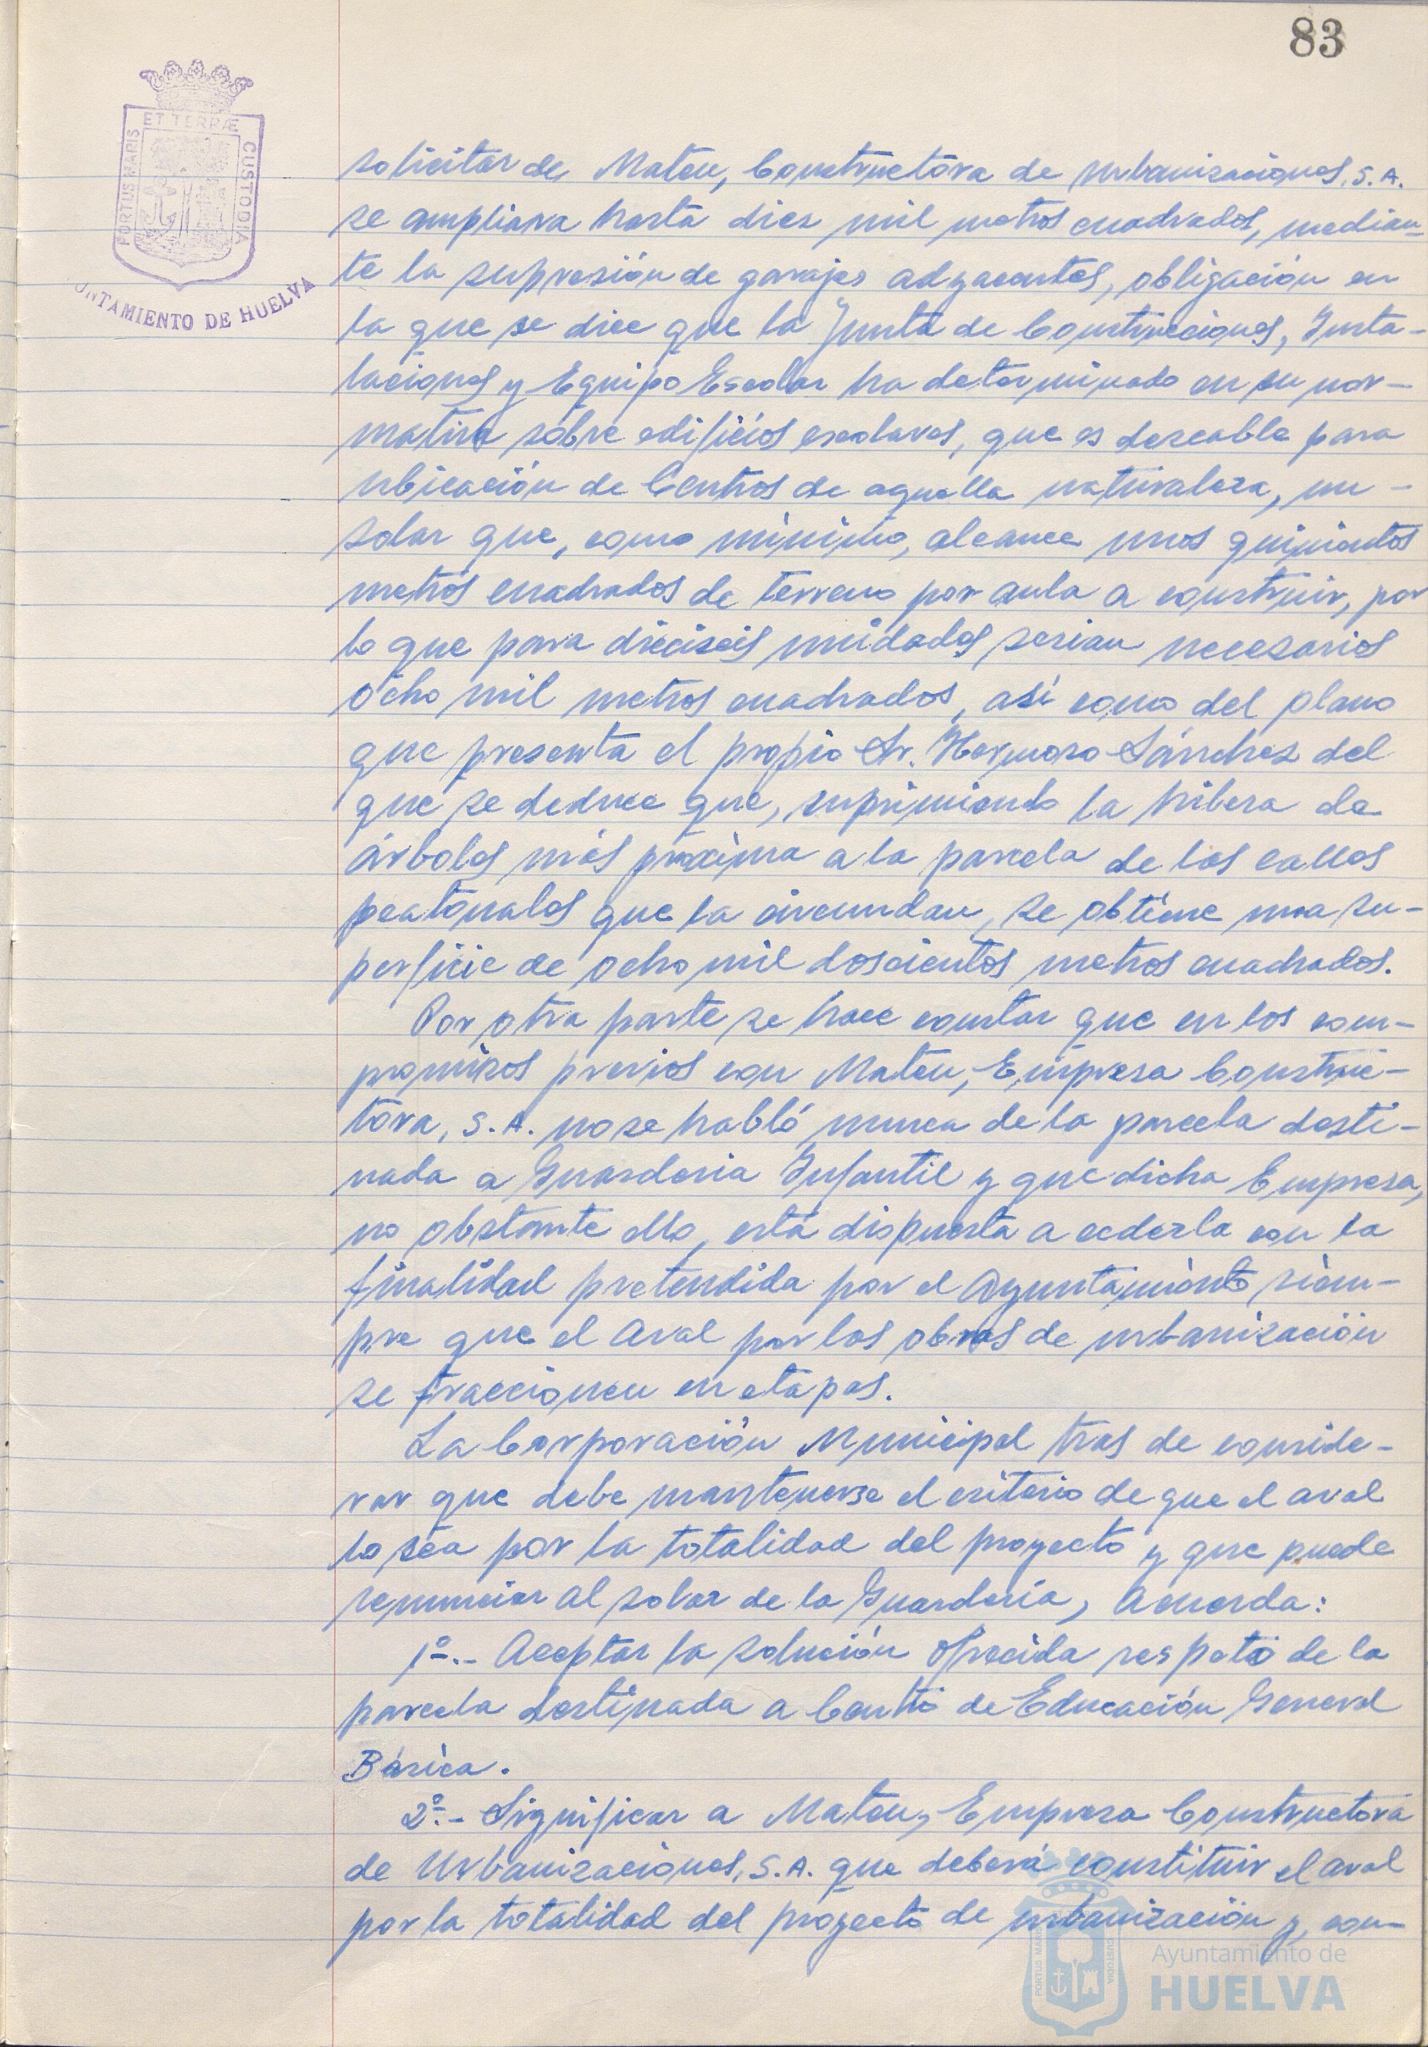 83
ET TERRÆ
PORTUS MARIS
CUSTODIA
UNTAMIENTO DE HUELVA
solicitar de Mateu, Constructora de Urbanizaciones, S.A.
se ampliara hasta diez mil metros cuadrados, median-
te la supresión de garajes adyacentes, obligación en
la que se dice que la Junta de Construcciones, Insta-
laciones y Equipo Escolar ha determinado en su nor-
mativa sobre edificios escolares, que es deseable para
ubicación de Centros de aquella naturaleza, un
solar que, como mínimo, alcance unos quinientos
metros cuadrados de terreno por aula a construir, por
lo que para dieciseis unidades serian necesarios
ocho mil metros cuadrados, así como del plano
que presenta el propio Sr. Hermoso Sánchez del
que se deduce que, suprimiendo la hilera de
árboles más próxima a la parcela de las calles
peatonales que la circundan, se obtiene una su-
perficie de ocho mil doscientos metros cuadrados.
Por otra parte se hace constar que en los com-
promisos previos con Mateu, Empresa Construc-
tora, S.A. no se habló nunca de la parcela desti-
nada a Guarderia Infantil y que dicha Empresa,
no obstante ello, está dispuesta a cederla con la
finalidad pretendida por el Ayuntamiento, siem-
pre que el aval por las obras de urbanización
se fraccionen en etapas.
La Corporación Municipal tras de conside-
rar que debe mantenerse el criterio de que el aval
lo sea por la totalidad del proyecto y que puede
renunciar al solar de la Guardería, Acuerda:
1º.- Aceptar la solución ofrecida respeto de la
parcela destinada a Centro de Educación General
Básica.
2º.- Significar a Mateu, Empresa Constructora
de Urbanizaciones, S.A. que deberá constituir el aval
por la totalidad del proyecto de urbanización y, con-
PORTUS MARIS
CUSTODIA
Ayuntamiento de
HUELVA